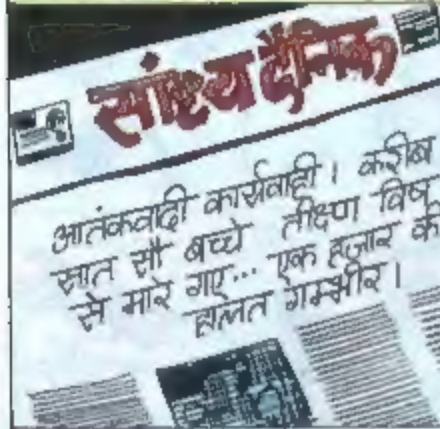 सांध्य दैनिक
आतंकवादी कार्यवाही। करीब
सात सौ बच्चे तीक्ष्ण विष
से मारे गए... एक हजार की
हालत गम्भीर।